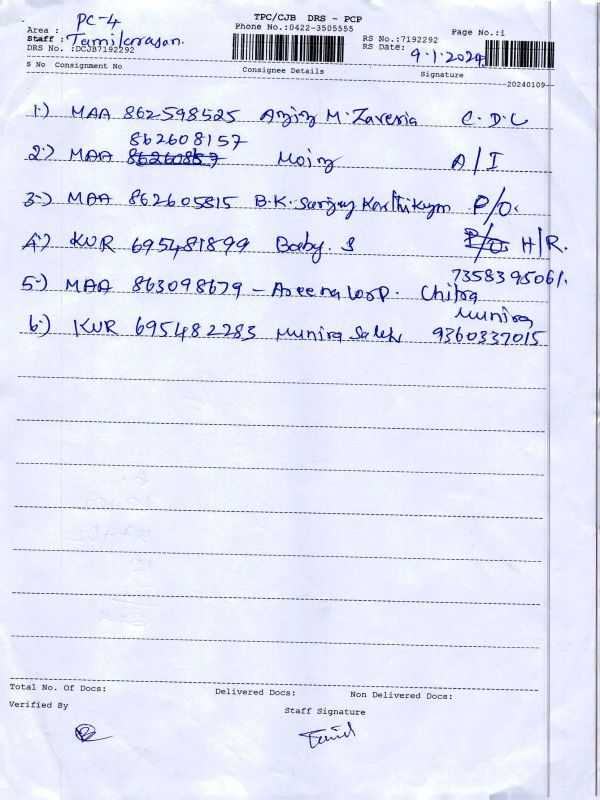 TPC/CJB DRS - PCP
Area : PC-4
Phone No.:0422-3505555
Page No.:1
Staff : Tamilarasan.
RS No.:7192292
DRS No. :DCJB7192292
RS Date: 9.1.2024
S No Consignment No Consignee Details Signature
20240109
1.) MAA 862598525 Aziz M. Zaveria C.D.C
862608157
2.) MAA Moiz A/I
3.) MAA 862605815 B.K. Sanjay Karthikyan P/O.
4.) KUR 695481899 Baby. S P/O. H/R.
7358395061.
5.) MAA 863098679 - Aseena Corp. Chitra
Munira
6.) KUR 695482283 Munira Saleh 9360337015
Total No. Of Docs: Delivered Docs: Non Delivered Docs:
Verified By Staff Signature
Tamil